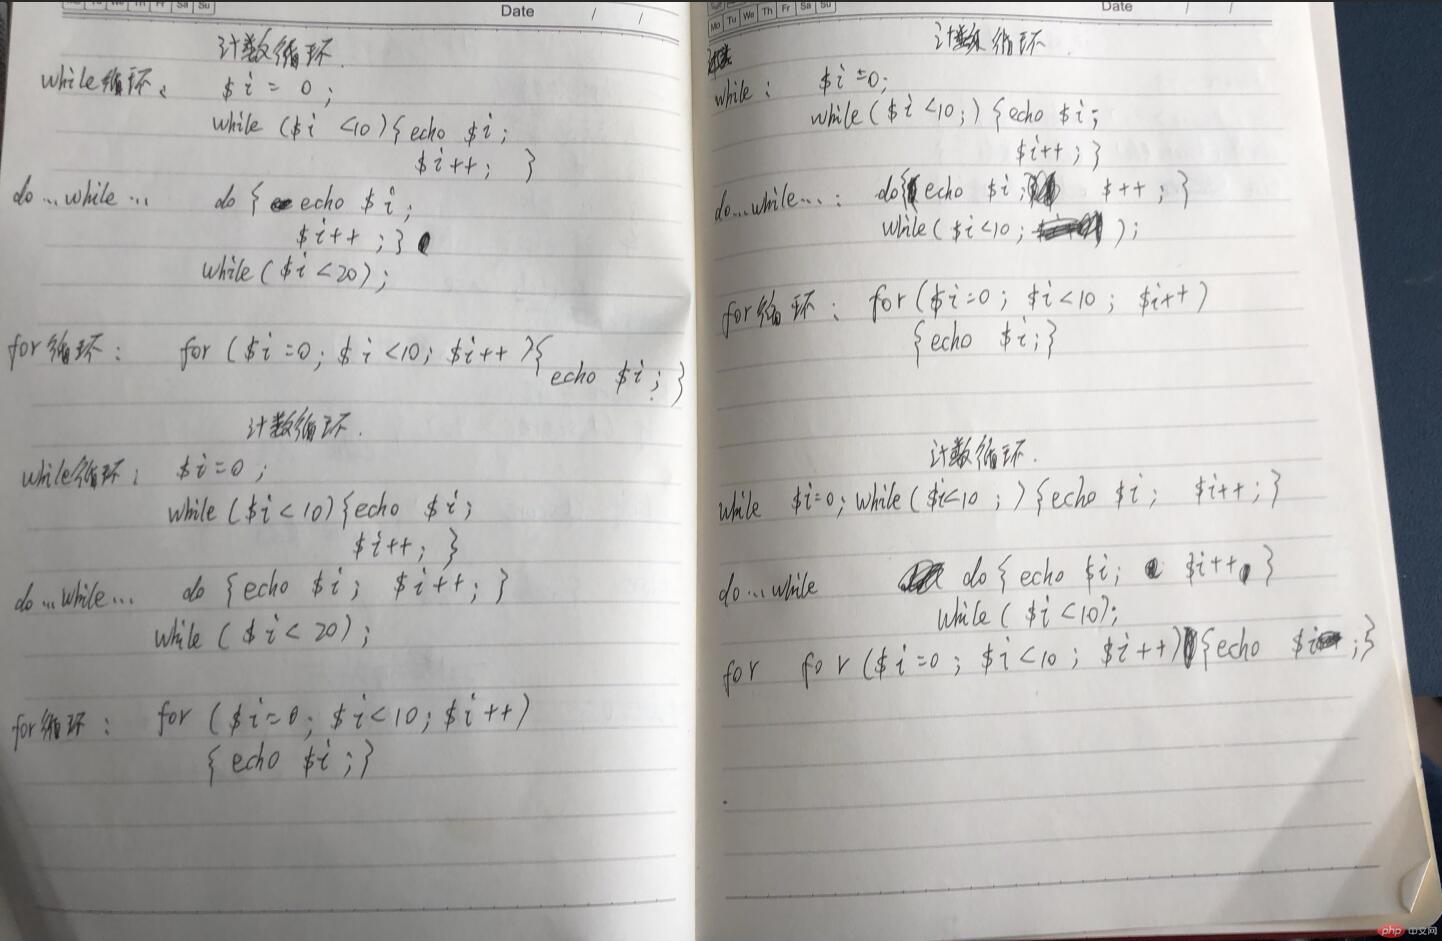 Mo Tu We Th Fr Sa Su
Date / /
计数循环.
while循环、 $i = 0;
while ($i <10){echo $i;
$i++; }
do...while... do { echo $i;
$i++;}
while($i<20);
for循环: for ($i=0; $i<10; $i++){
echo $i; }
计数循环.
while循环: $i=0;
while($i<10){echo $i;
$i++; }
do...while... do {echo $i; $i++; }
while ($i<20);
for循环: for ($i=0; $i<10; $i++)
{ echo $i;}
Mo Tu We Th Fr Sa Su
Date / /
计数循环.
while: $i=0;
while($i<10;){echo $i;
$i++;}
do...while...: do{echo $i; $++;}
while($i<10; );
for循环: for($i=0; $i<10; $i++)
{echo $i;}
计数循环.
while $i=0; while($i<10;){echo $i; $i++;}
do...while do{echo $i; $i++ }
while($i<10);
for for($i=0; $i<10; $i++){echo $i;}
php 中文网